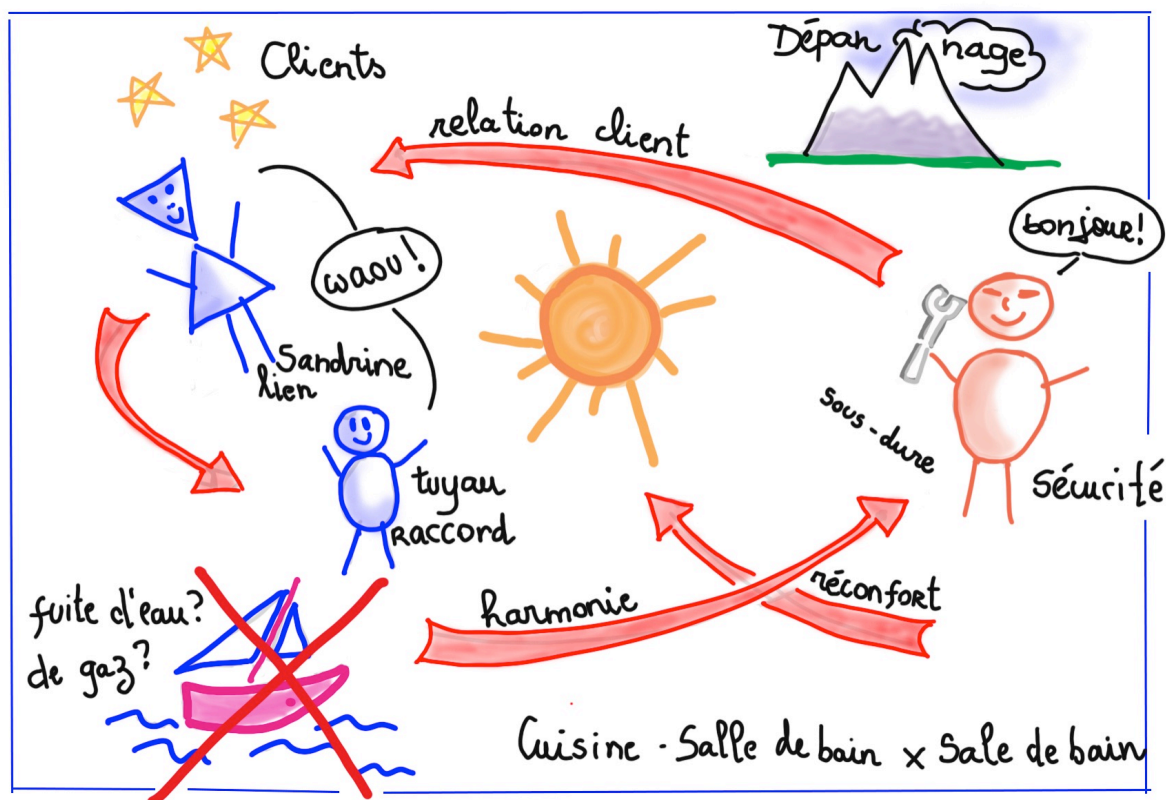 Clients
Dépannage
relation client
bonjour!
waou!
Sandrine
lien
sous-dure
Sécurité
tuyau
RACCORD
fuite d'eau?
de gaz?
harmonie
réconfort
Cuisine - Salle de bain x Sale de bain